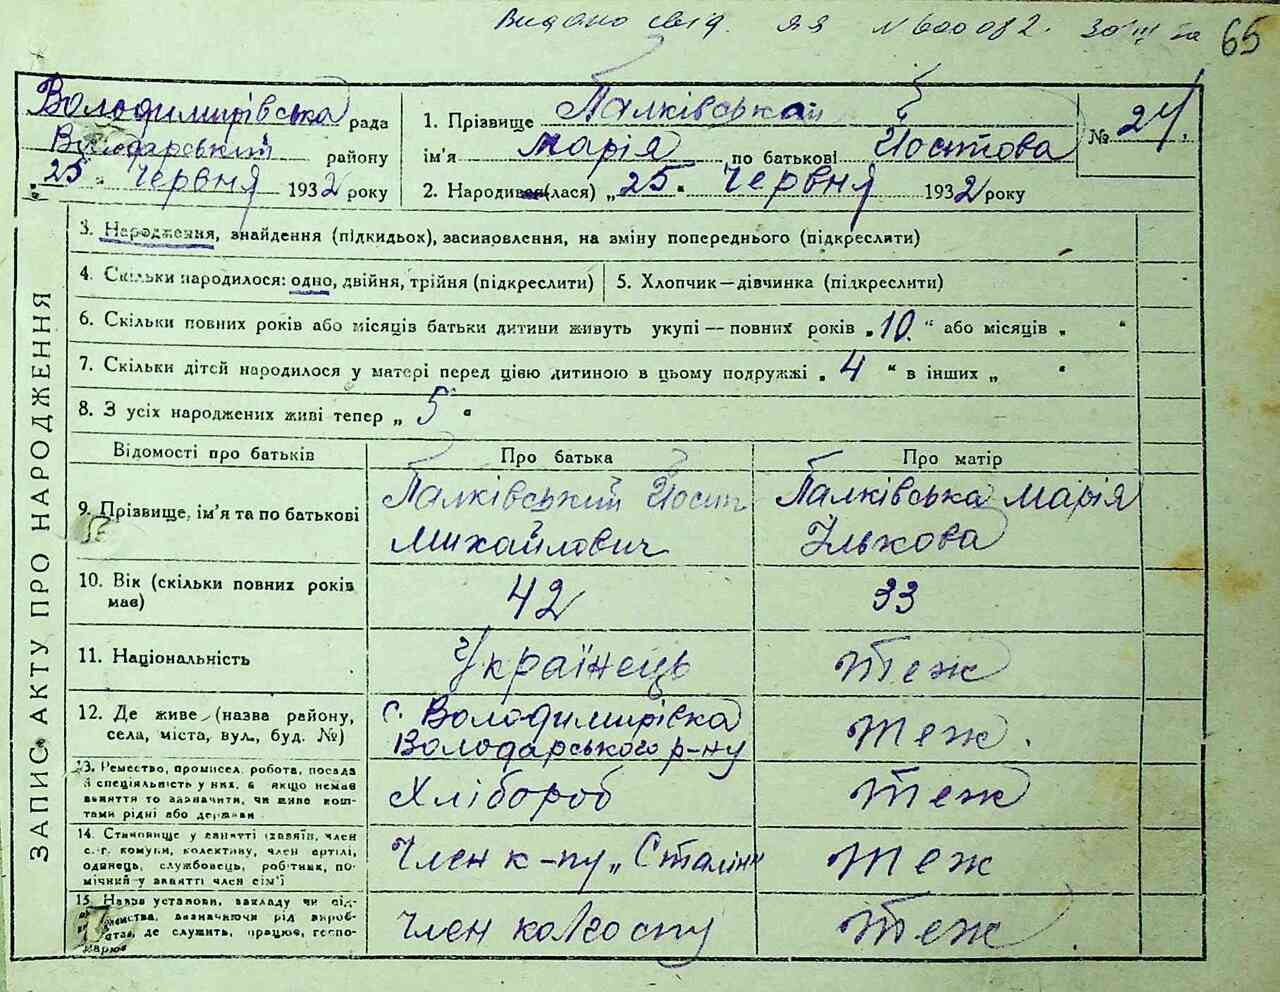 Видано свід. ЯЯ №600082. 30 III
65
Володимирівська рада
Володарський району
„25“ Червня 1932 року
1. Прізвище Палківська
ім'я Марія по батькові Йостова
2. Народився(лася) „25“ Червня 1932 року
№ 24.
ЗАПИС АКТУ ПРО НАРОДЖЕННЯ
3. Народження, знайдення (підкидьох), засиновлення, на зміну попереднього (підкреслити)
4. Скільки народилося: одно, двійня, трійня (підкреслити) 5. Хлопчик—дівчинка (підкреслити)
6. Скільки повних років або місяців батьки дитини живуть укупі — повних років „10“ або місяців „ “
7. Скільки дітей народилося у матері перед цією дитиною в цьому подружжі „4“ в інших „ “
8. З усіх народжених живі тепер „5“
Відомості про батьків Про батька Про матір
9. Прізвище, ім'я та по батькові
Палківський Йост
Михайлович
Палківська Марія
Ількова
10. Вік (скільки повних років
має)
42
33
11. Національність Українець теж
12. Де живе (назва району,
села, міста, вул., буд. №)
с. Володимирівка
Володарського р-ну
теж.
13. Ремество, промисел, робота, посада
й спеціяльність у них, а якщо немає
заняття то зазначити, чи живе кош-
тами рідні або держави
Хлібороб
теж
14. Становище у занятті (хазяїн, член
с.-г. комуни, колективу, член артілі,
одинець, службовець, робітник, по-
мічний у занятті член сім'ї
Член к-пу „Сталін“
теж
15. Назва установи, закладу чи під-
приємства, зазначаючи рід вироб-
де служить, працює, госпо-
дарює
Член колгоспу
теж.